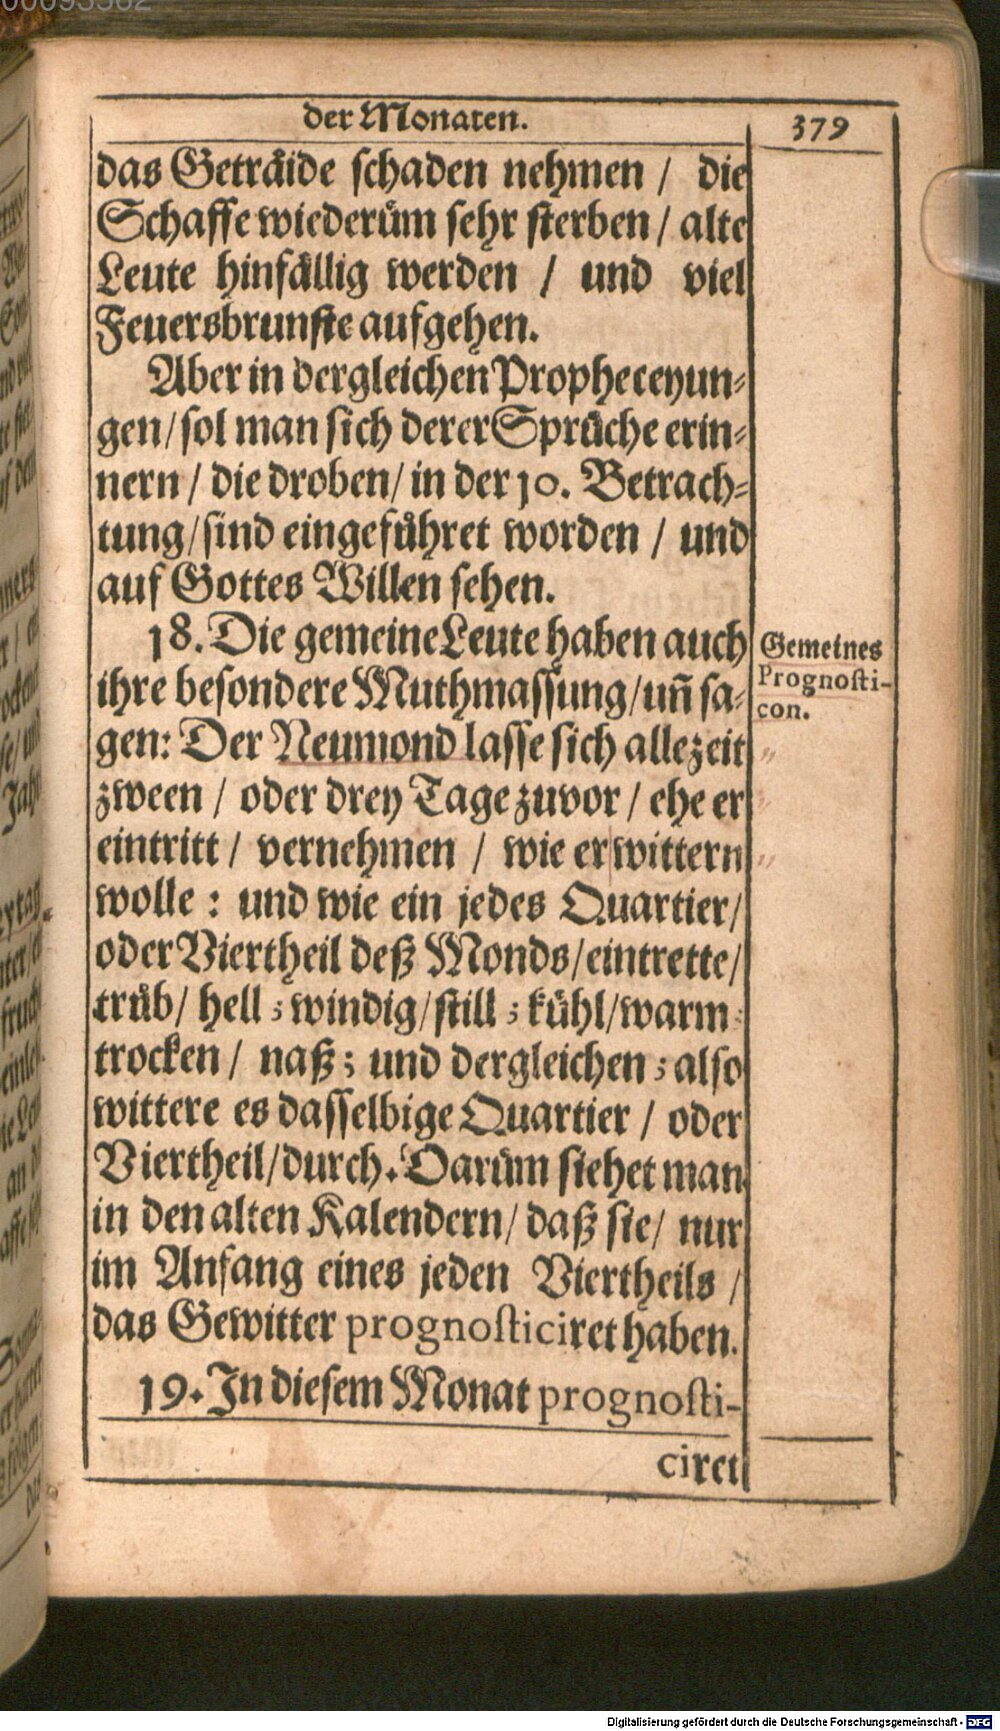 00093562
der Monaten.
379
das Geträide schaden nehmen / die
Schaffe wiederům sehr sterben / alte
Leute hinfällig werden / und viel
Feuersbrunste aufgehen.
Aber in dergleichen Propheceyun-
gen / sol man sich derer Sprüche erin-
nern / die droben / in der 10. Betrach-
tung / sind eingeführet worden / und
auf Gottes Willen sehen.
18. Die gemeine Leute haben auch
ihre besondere Muthmassung / uñ sa-
gen: Der Neumond lasse sich allezeit
zween / oder drey Tage zuvor / ehe er
eintritt / vernehmen / wie er wittern
wolle : und wie ein jedes Quartier /
oder Viertheil deß Monds / eintrette /
trüb / hell ; windig / still ; kühl / warm :
trocken / naß ; und dergleichen ; also
wittere es dasselbige Quartier / oder
Viertheil / durch. Darům siehet man
in den alten Kalendern / daß sie / nur
im Anfang eines jeden Viertheils /
das Gewitter prognosticiret haben.
19. In diesem Monat prognosti-
ciret
Gemeines
Prognosti-
con.
Digitalisierung gefördert durch die Deutsche Forschungsgemeinschaft - DFG